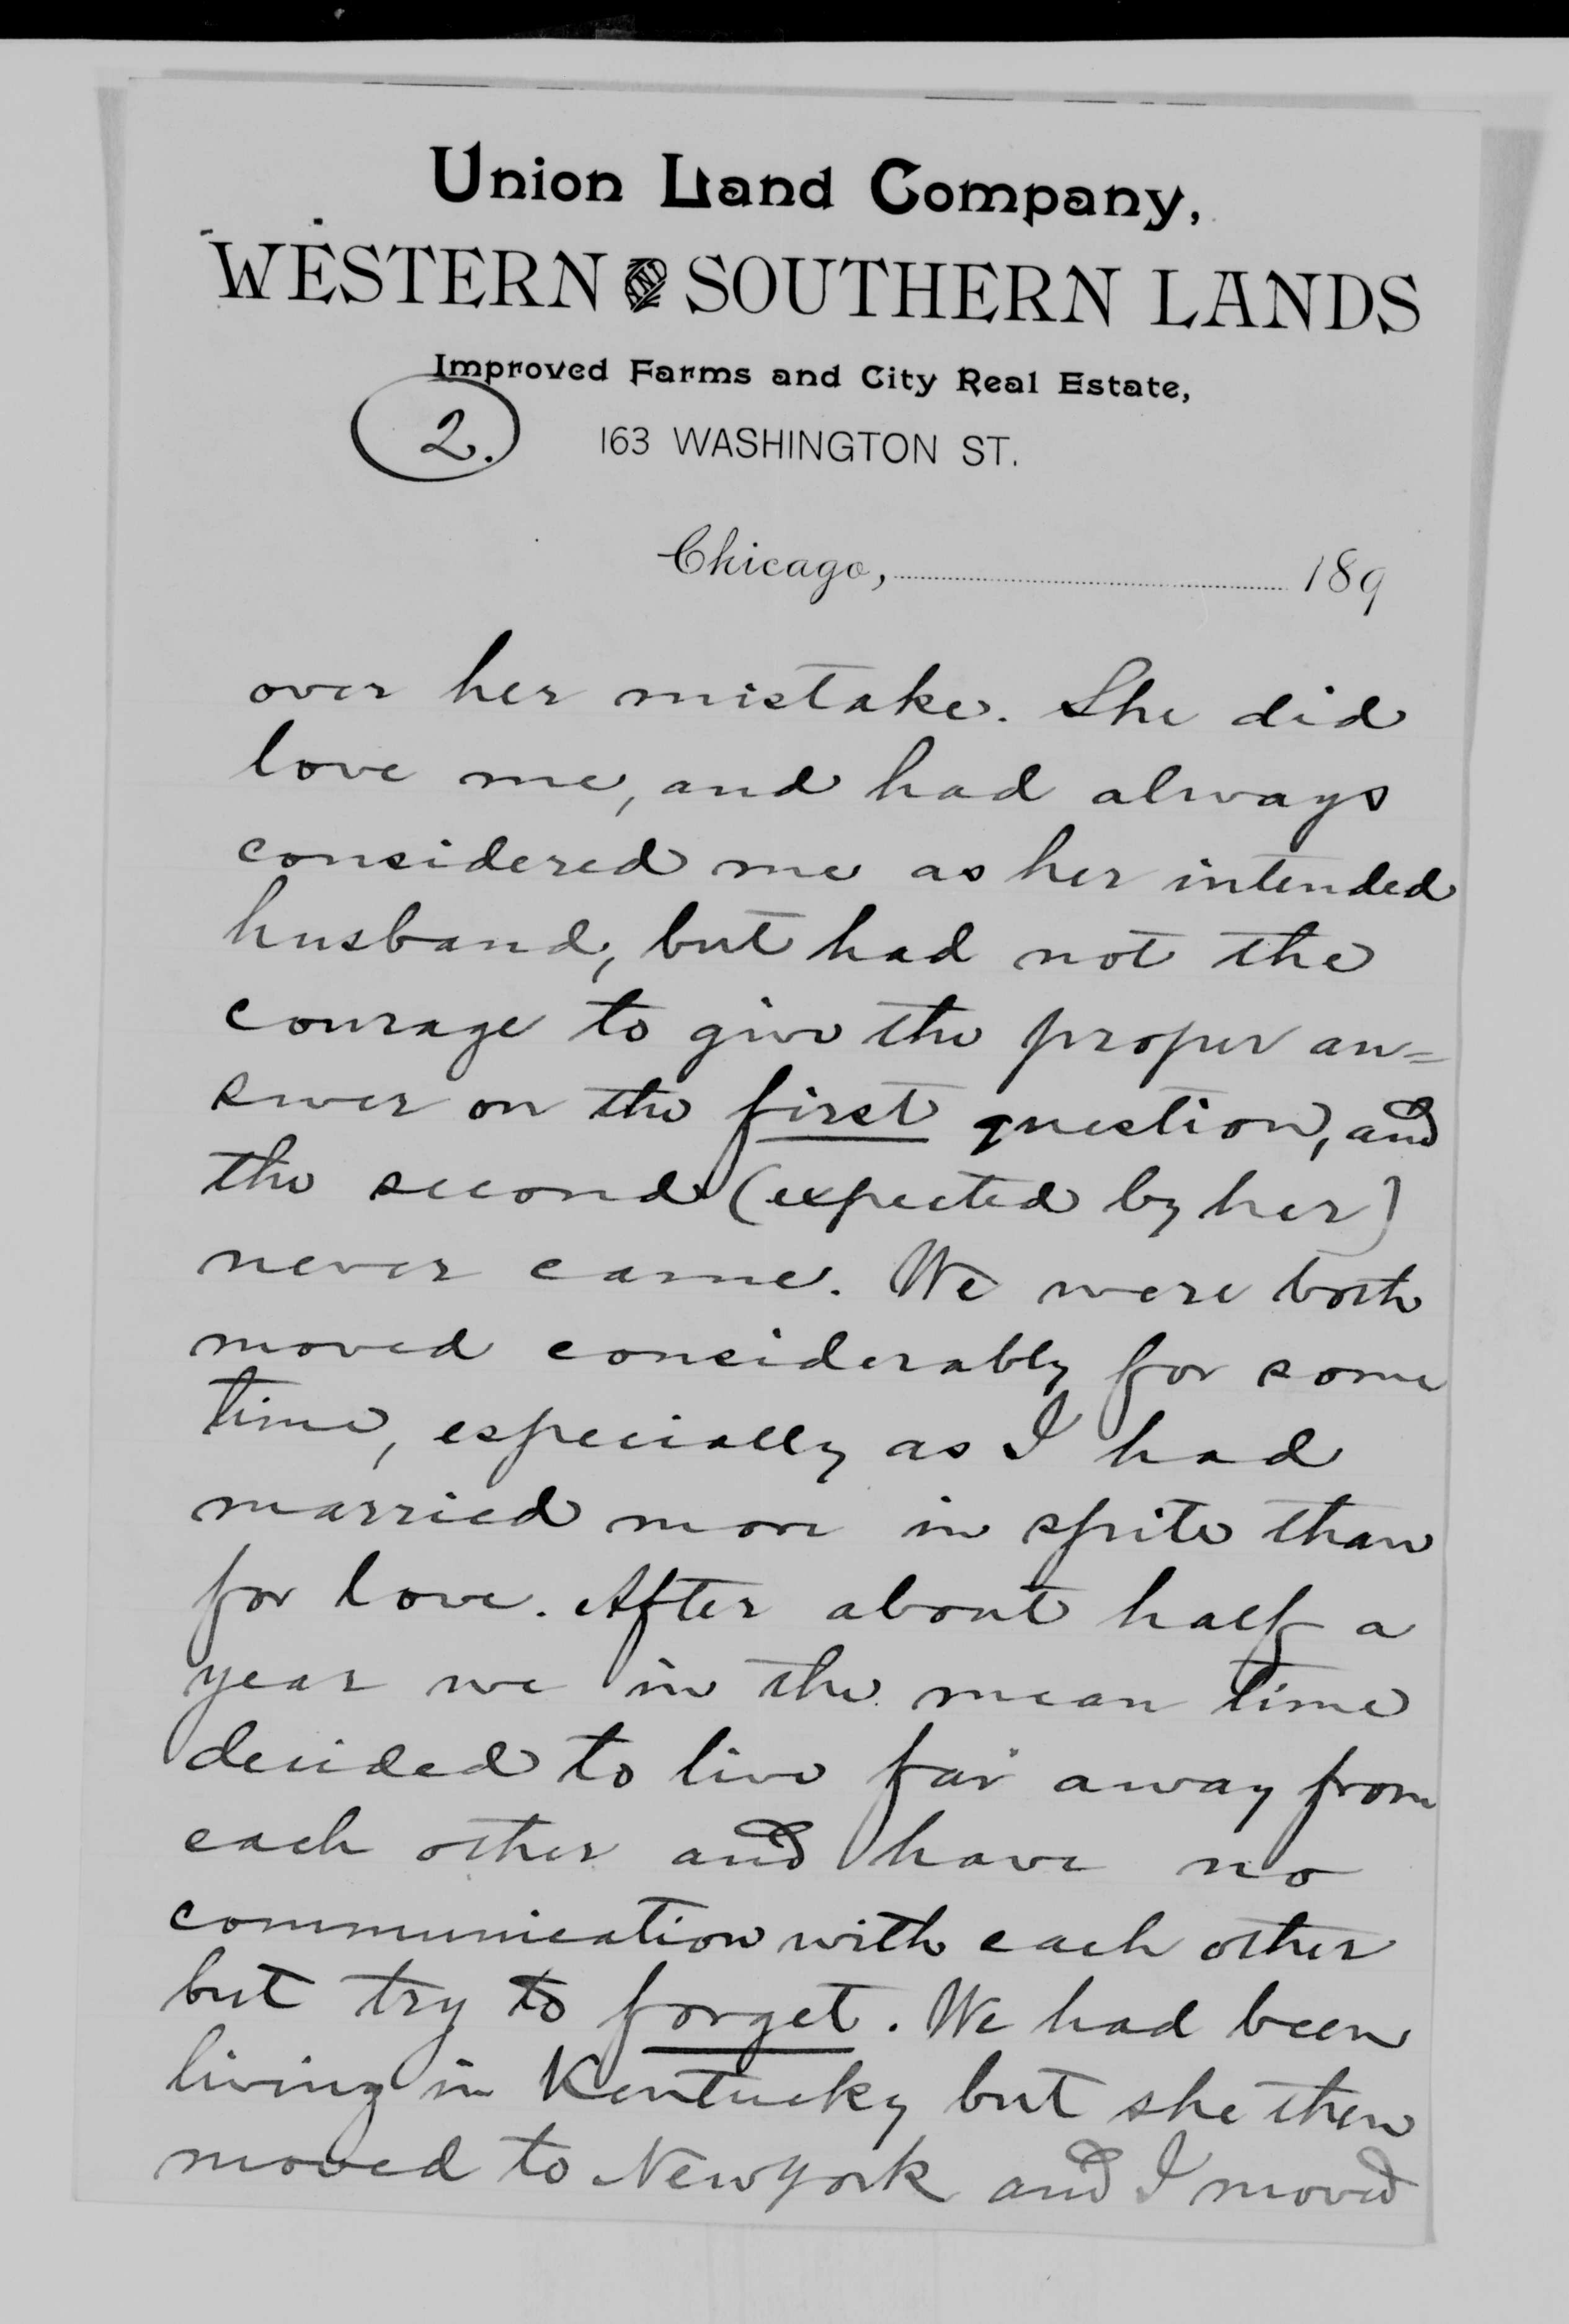 Union Land Company,
WESTERN AND SOUTHERN LANDS
Improved Farms and City Real Estate,
2. 163 WASHINGTON ST.
Chicago, 189
over her mistake. She did
love me, and had always
considered me as her intended
husband, but had not the
courage to give the proper an=
swer on the first question, and
the second (expected by her)
never came. We were both
moved considerably for some
time, especially as I had
married more in spite than
for love. After about half a
year we in the mean time
decided to live far away from
each other and have no
communication with each other
but try to forget. We had been
living in Kentucky but she then
moved to New York and I moved